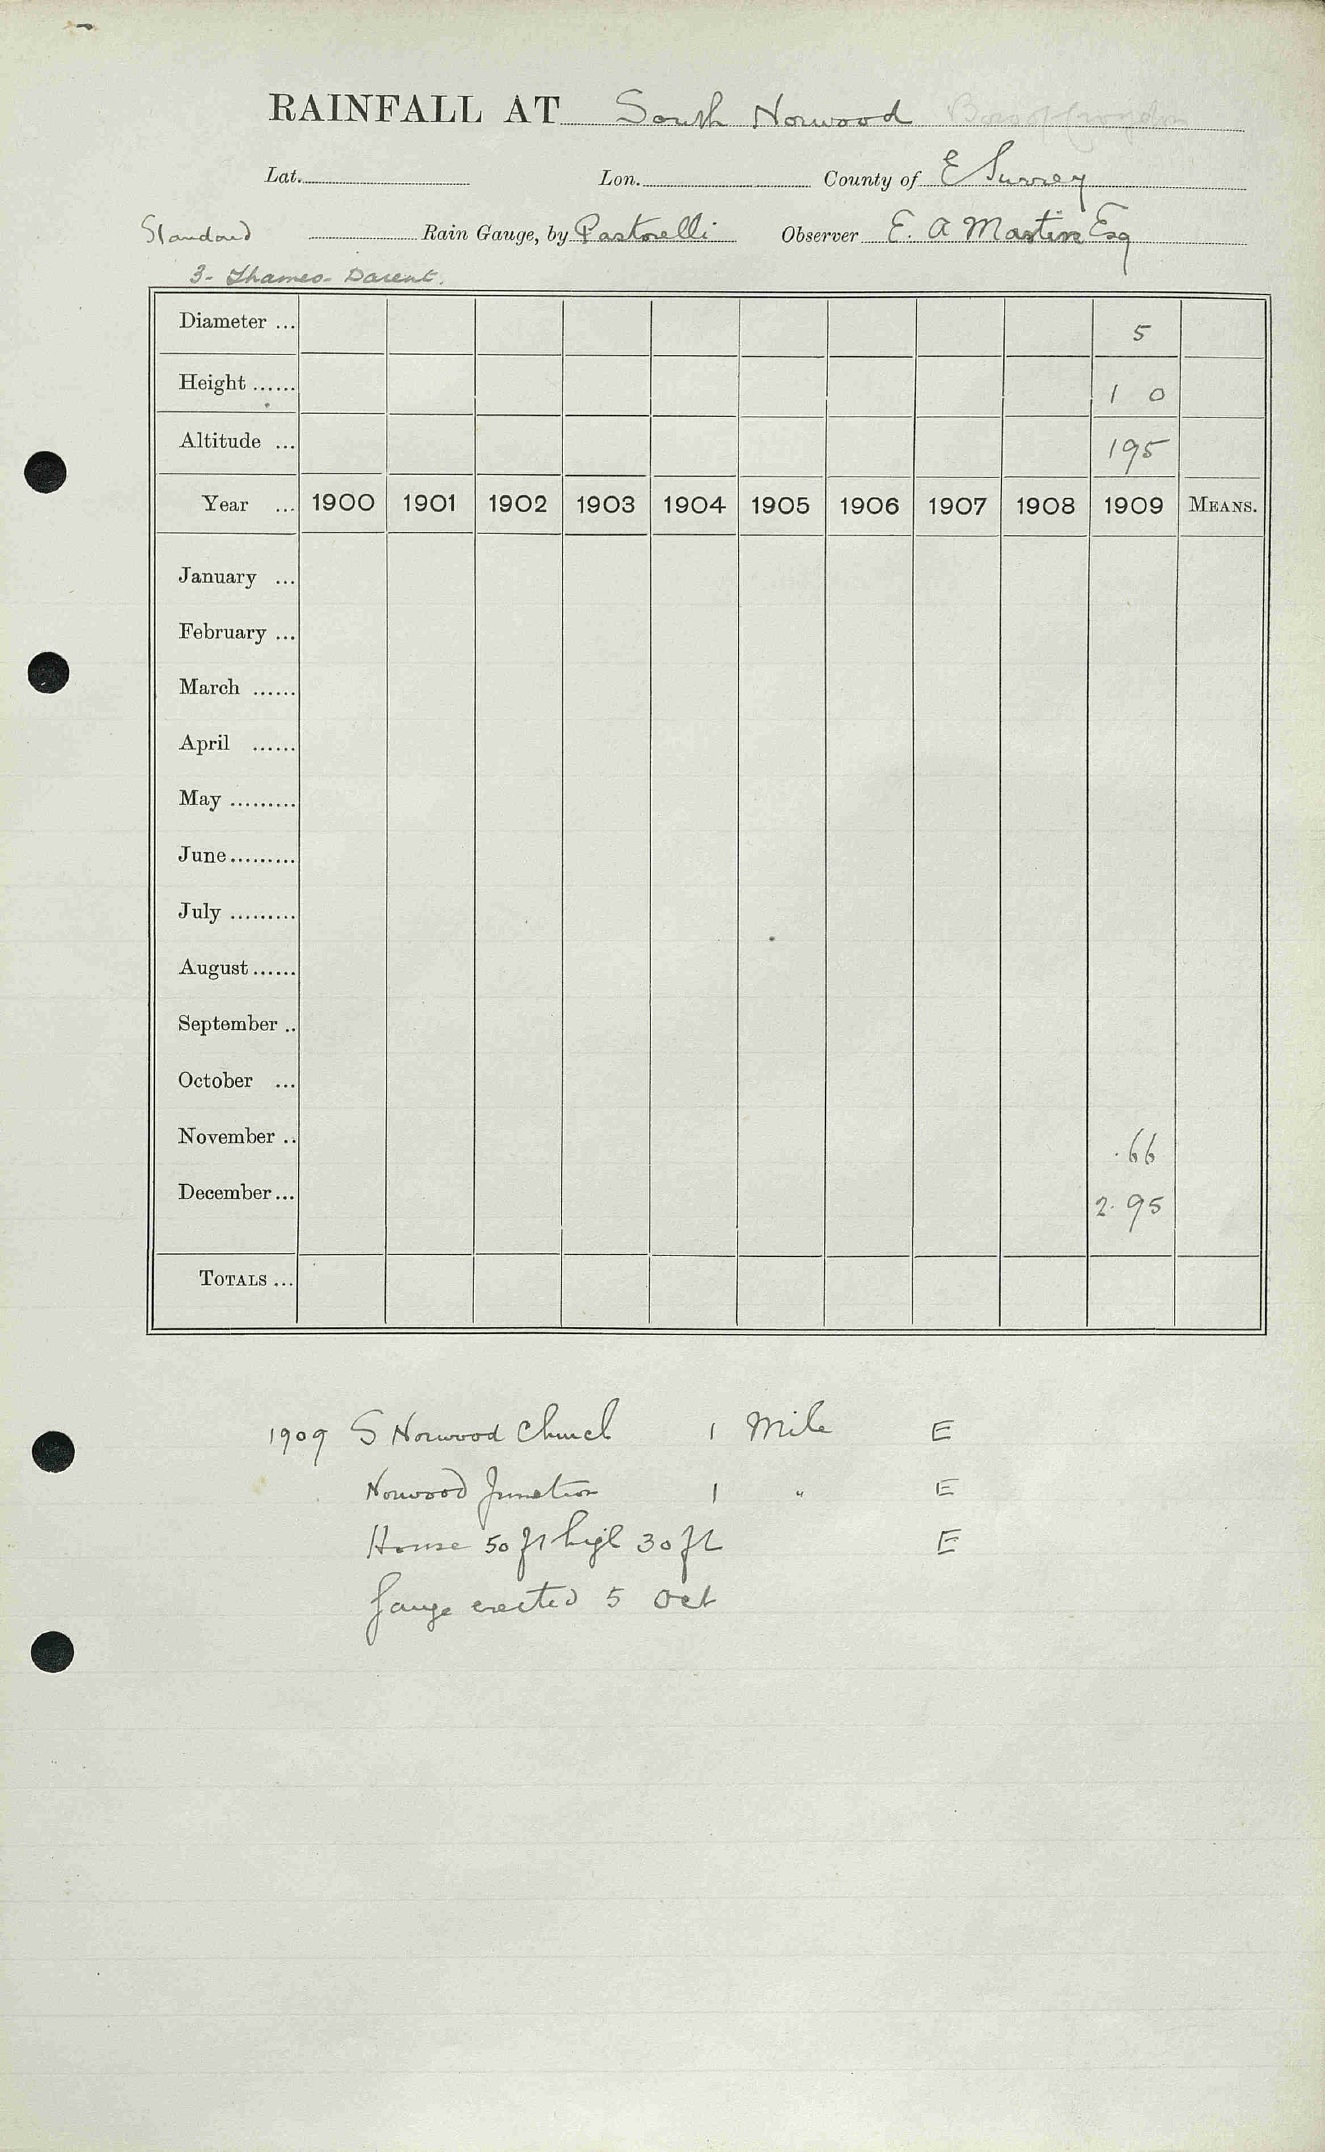 RAINFALL AT South Norwood Boro of Croydon
Lat. Lon. County of E Surrey
Standard Rain Gauge, by Pastorelli Observer E. A Martin Esq
3- Thames- Darent.
Diameter ... 5
Height ...... 1 0
Altitude ... 195
Year ... 1900 1901 1902 1903 1904 1905 1906 1907 1908 1909 MEANS.
January ...
February ...
March ......
April ......
May .........
June.........
July .........
August......
September ..
October ...
November .. .66
December... 2.95
TOTALS ...
1909 S Norwood Church 1 Mile E
Norwood Junction 1 " E
House 50 ft high 30 ft E
Gauge erected 5 Oct